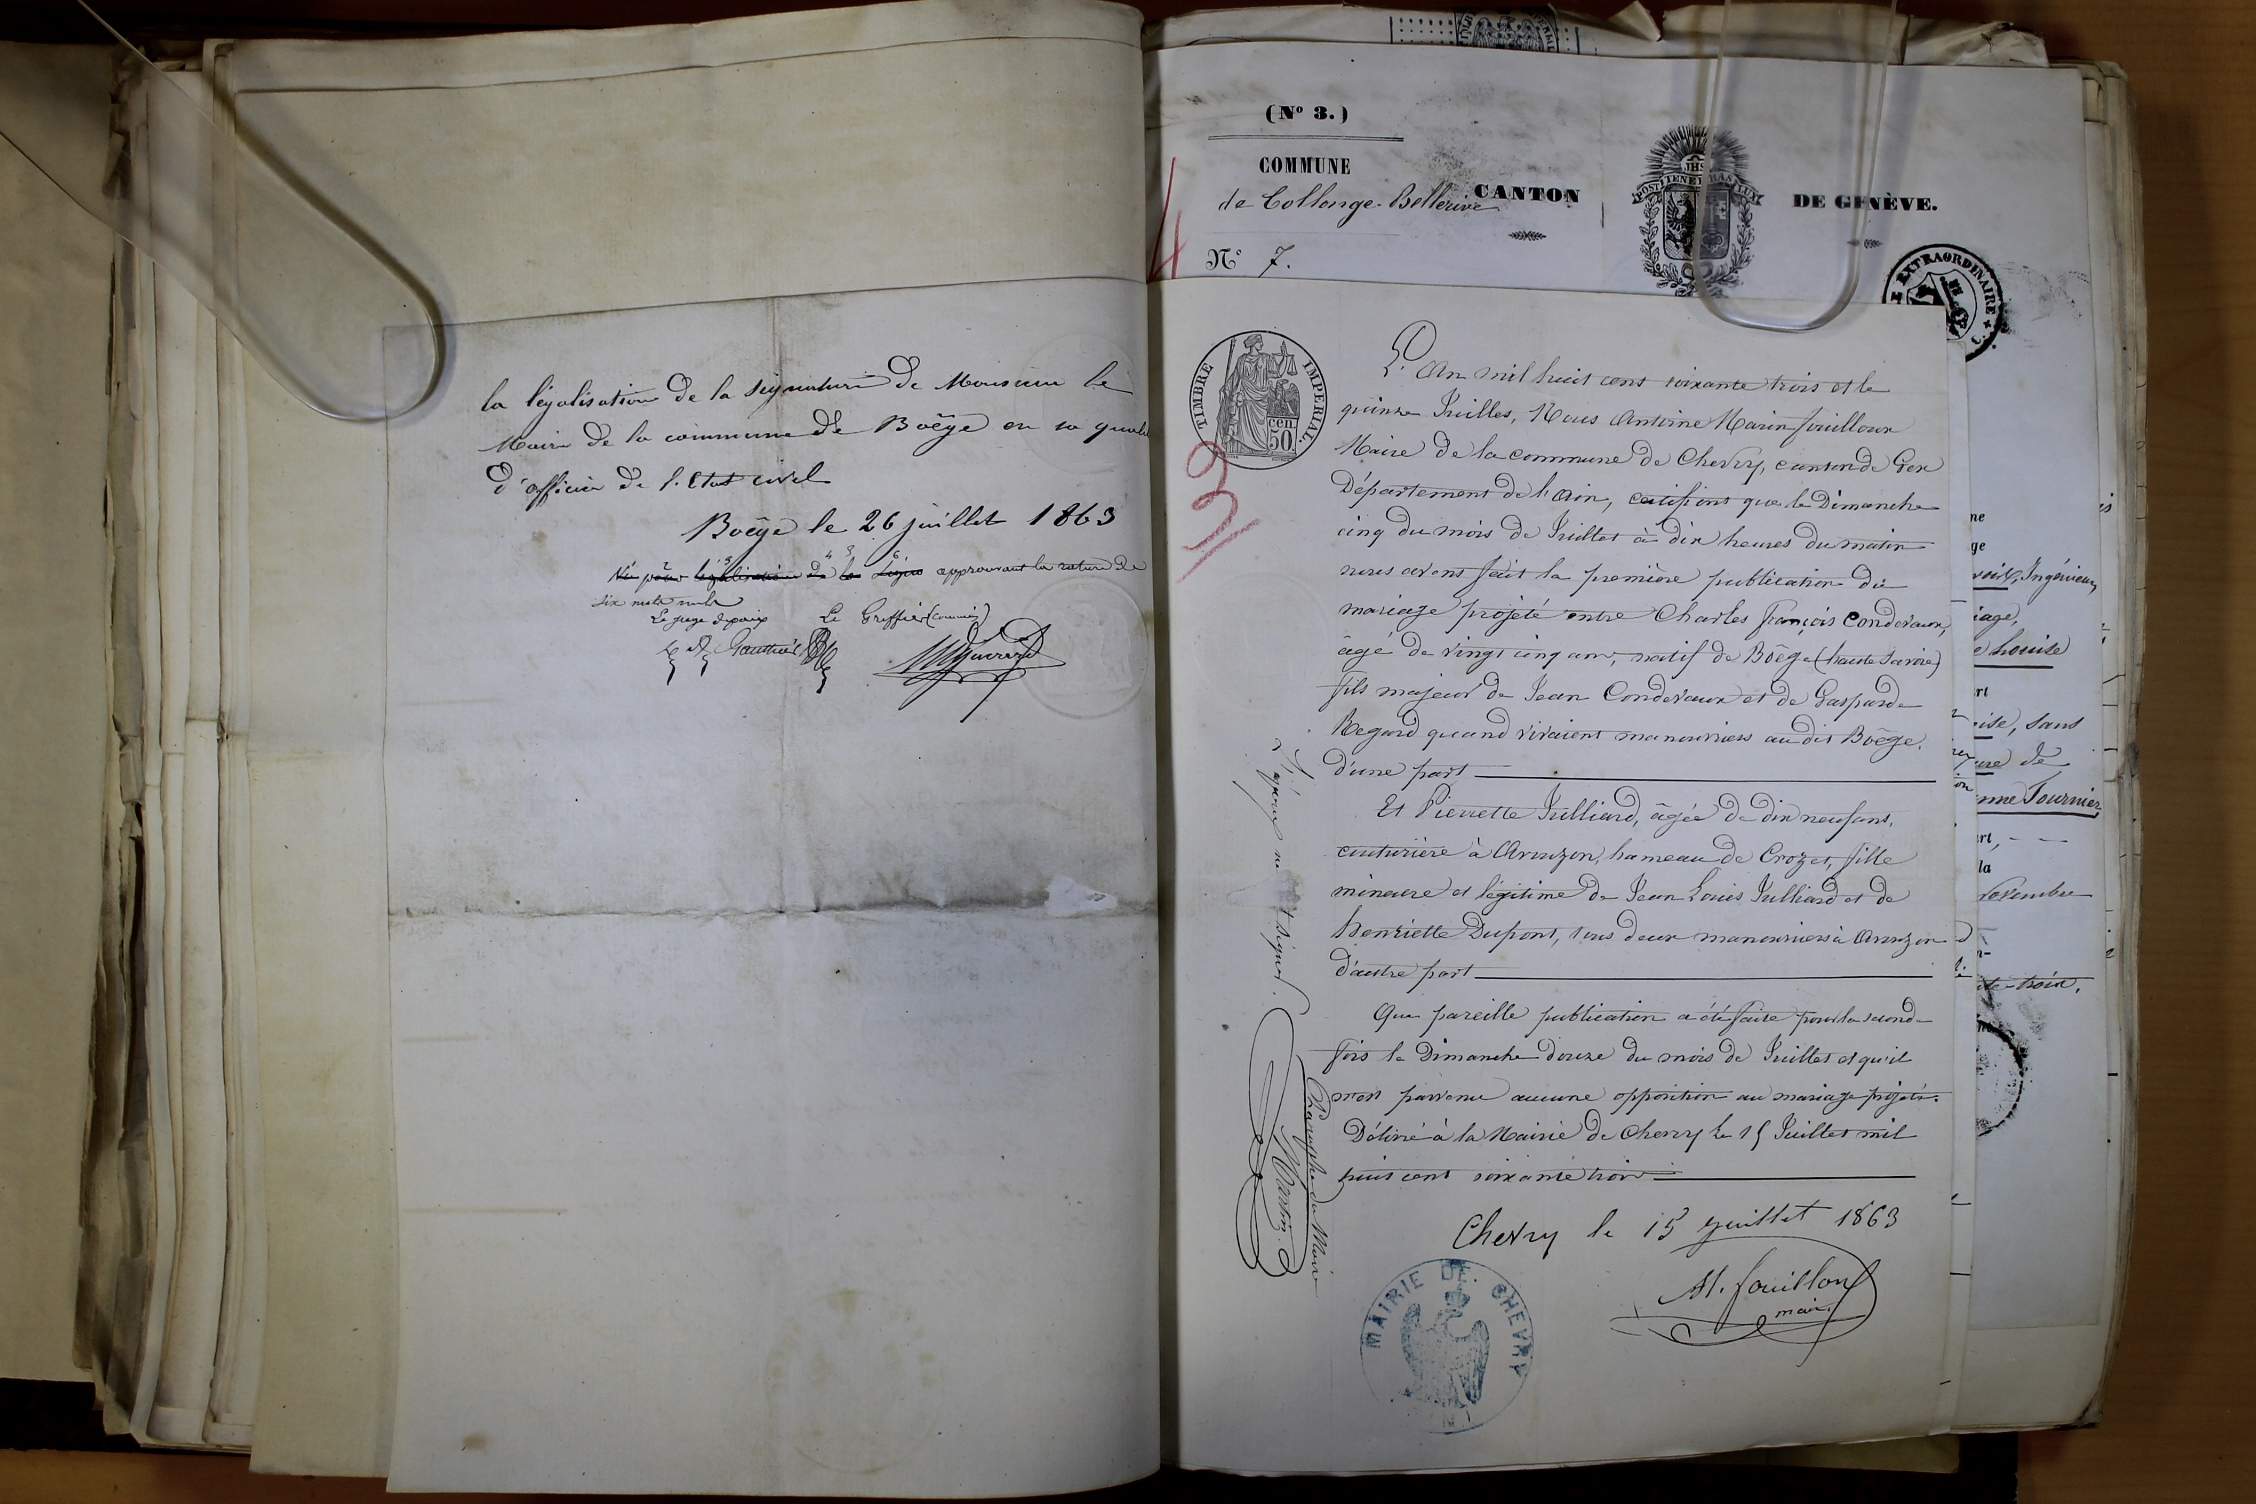 la légalisation de la signature de Monsieur le
Maire de la commune de Boëge en sa qualité
d'officier de l'Etat civil
Boëge le 26 juillet 1863
Vu pour légalisation de la approuvant la rature de
six mots nuls
Le juge de paix Le Greffier (commis)
Gauthier
(No 3.)
COMMUNE
de Collonge-Bellerive
CANTON DE GENÈVE.
POST TENEBRAS LUX
JHS
No 7.
EXTRAORDINAIRE
TIMBRE IMPERIAL.
50 cen
L'An mil huit cent soixante trois et le
quinze Juillet, Nous Antoine Marin fouilloux
Maire de la commune de Chevry, canton de Gex
Département de l'Ain, certifions que le Dimanche
cinq du mois de Juillet à dix heures du matin
nous avons fait la première publication du
mariage projeté entre Charles françois Condevaux,
âgé de vingt cinq ans, natif de Boëge (haute Savoie)
fils majeur de Jean Condevaux et de Gasparde
Regard quand vivaient manouvriers au dit Boëge.
d'une part
Et Pierrette Julliard, âgée de dix neuf ans,
couturière à Avouzon, hameau de Crozet, fille
mineure et légitime de Jean Louis Julliard et de
henriette Dupont, tous deux manouvriers à Avouzon
d'autre part
Que pareille publication a été faite pour la seconde
fois le Dimanche douze du mois de Juillet et qu'il
n'est parvenu aucune opposition au mariage projeté.
Délivré à la Mairie de Chevry le 15 Juillet mil
huit cent soixante trois
Chevry le 15 juillet 1863
M. fouilloux
maire
MAIRIE DE CHEVRY
AIN
Paraphe du Maire
Ingénieur,
iage,
Louise
sans
de
Fournier,
la